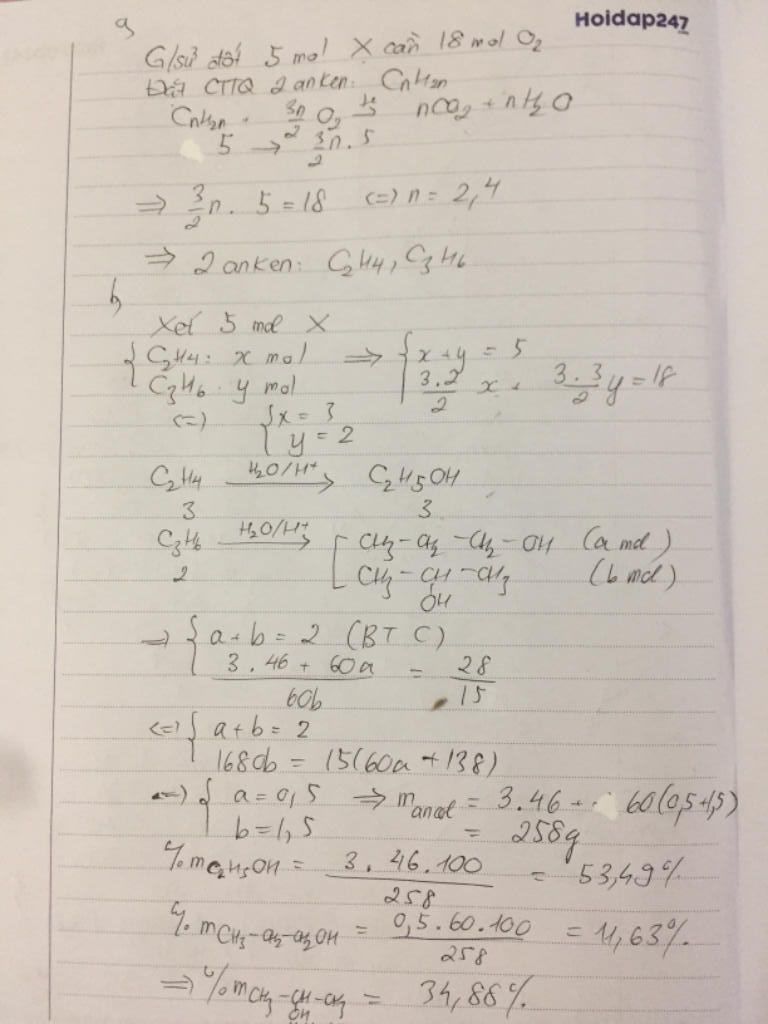 Hoidap247
a,
G/sử đốt 5 mol X cần 18 mol O2
Đặt CTTQ 2 anken: CnH2n
CnH2n + 3n/2 O2 → nCO2 + nH2O
5 → 3/2 n. 5
=> 3/2 n. 5 = 18 <=> n = 2,4
=> 2 anken: C2H4, C3H6
b,
Xét 5 mol X
{ C2H4: x mol => { x + y = 5
C3H6: y mol 3.2/2 x + 3.3/2 y = 18
<=> { x = 3
y = 2
C2H4 —H2O/H+→ C2H5OH
3 3
C3H6 —H2O/H+→ [ CH3-CH2-CH2-OH (a mol)
2 CH3-CH-CH3 (b mol)
OH
=> { a + b = 2 (BT C)
3.46 + 60a / 60b = 28/15
<=> { a + b = 2
1680b = 15(60a + 138)
<=> { a = 0,5 => m ancol = 3.46 + 60(0,5+1,5)
b = 1,5 = 258g
%mC2H5OH = 3.46.100/258 = 53,49%
%mCH3-CH2-CH2OH = 0,5.60.100/258 = 11,63%.
=> %mCH3-CH-CH3 = 34,88%.
OH